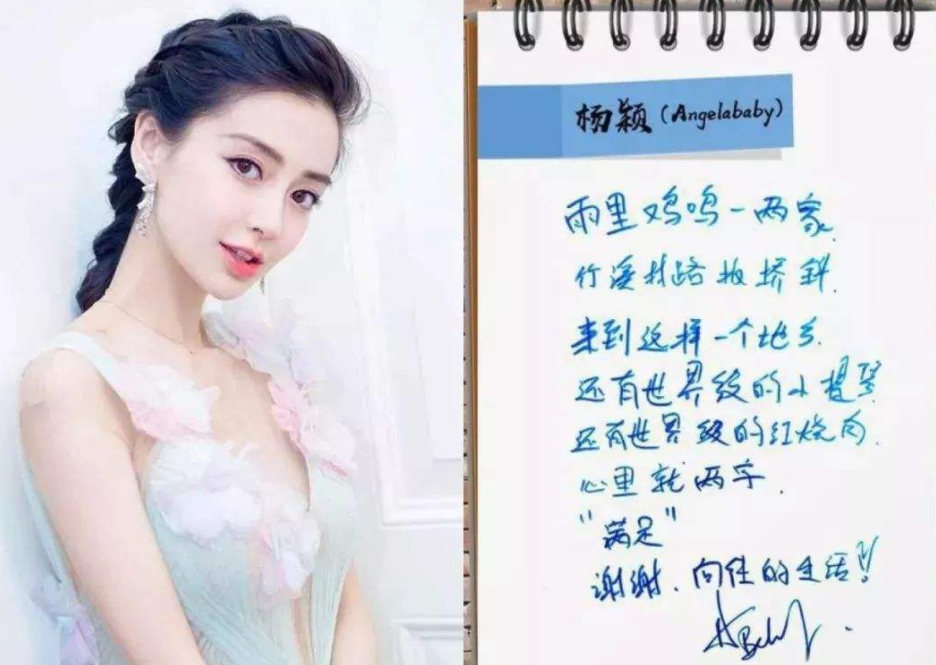 杨颖（Angelababy）
雨里鸡鸣一两家
竹溪村路板桥斜
来到这样一个地方
还有世界级的小提琴
还有世界级的红烧肉
心里就两字
“满足”
谢谢、向往的生活！！